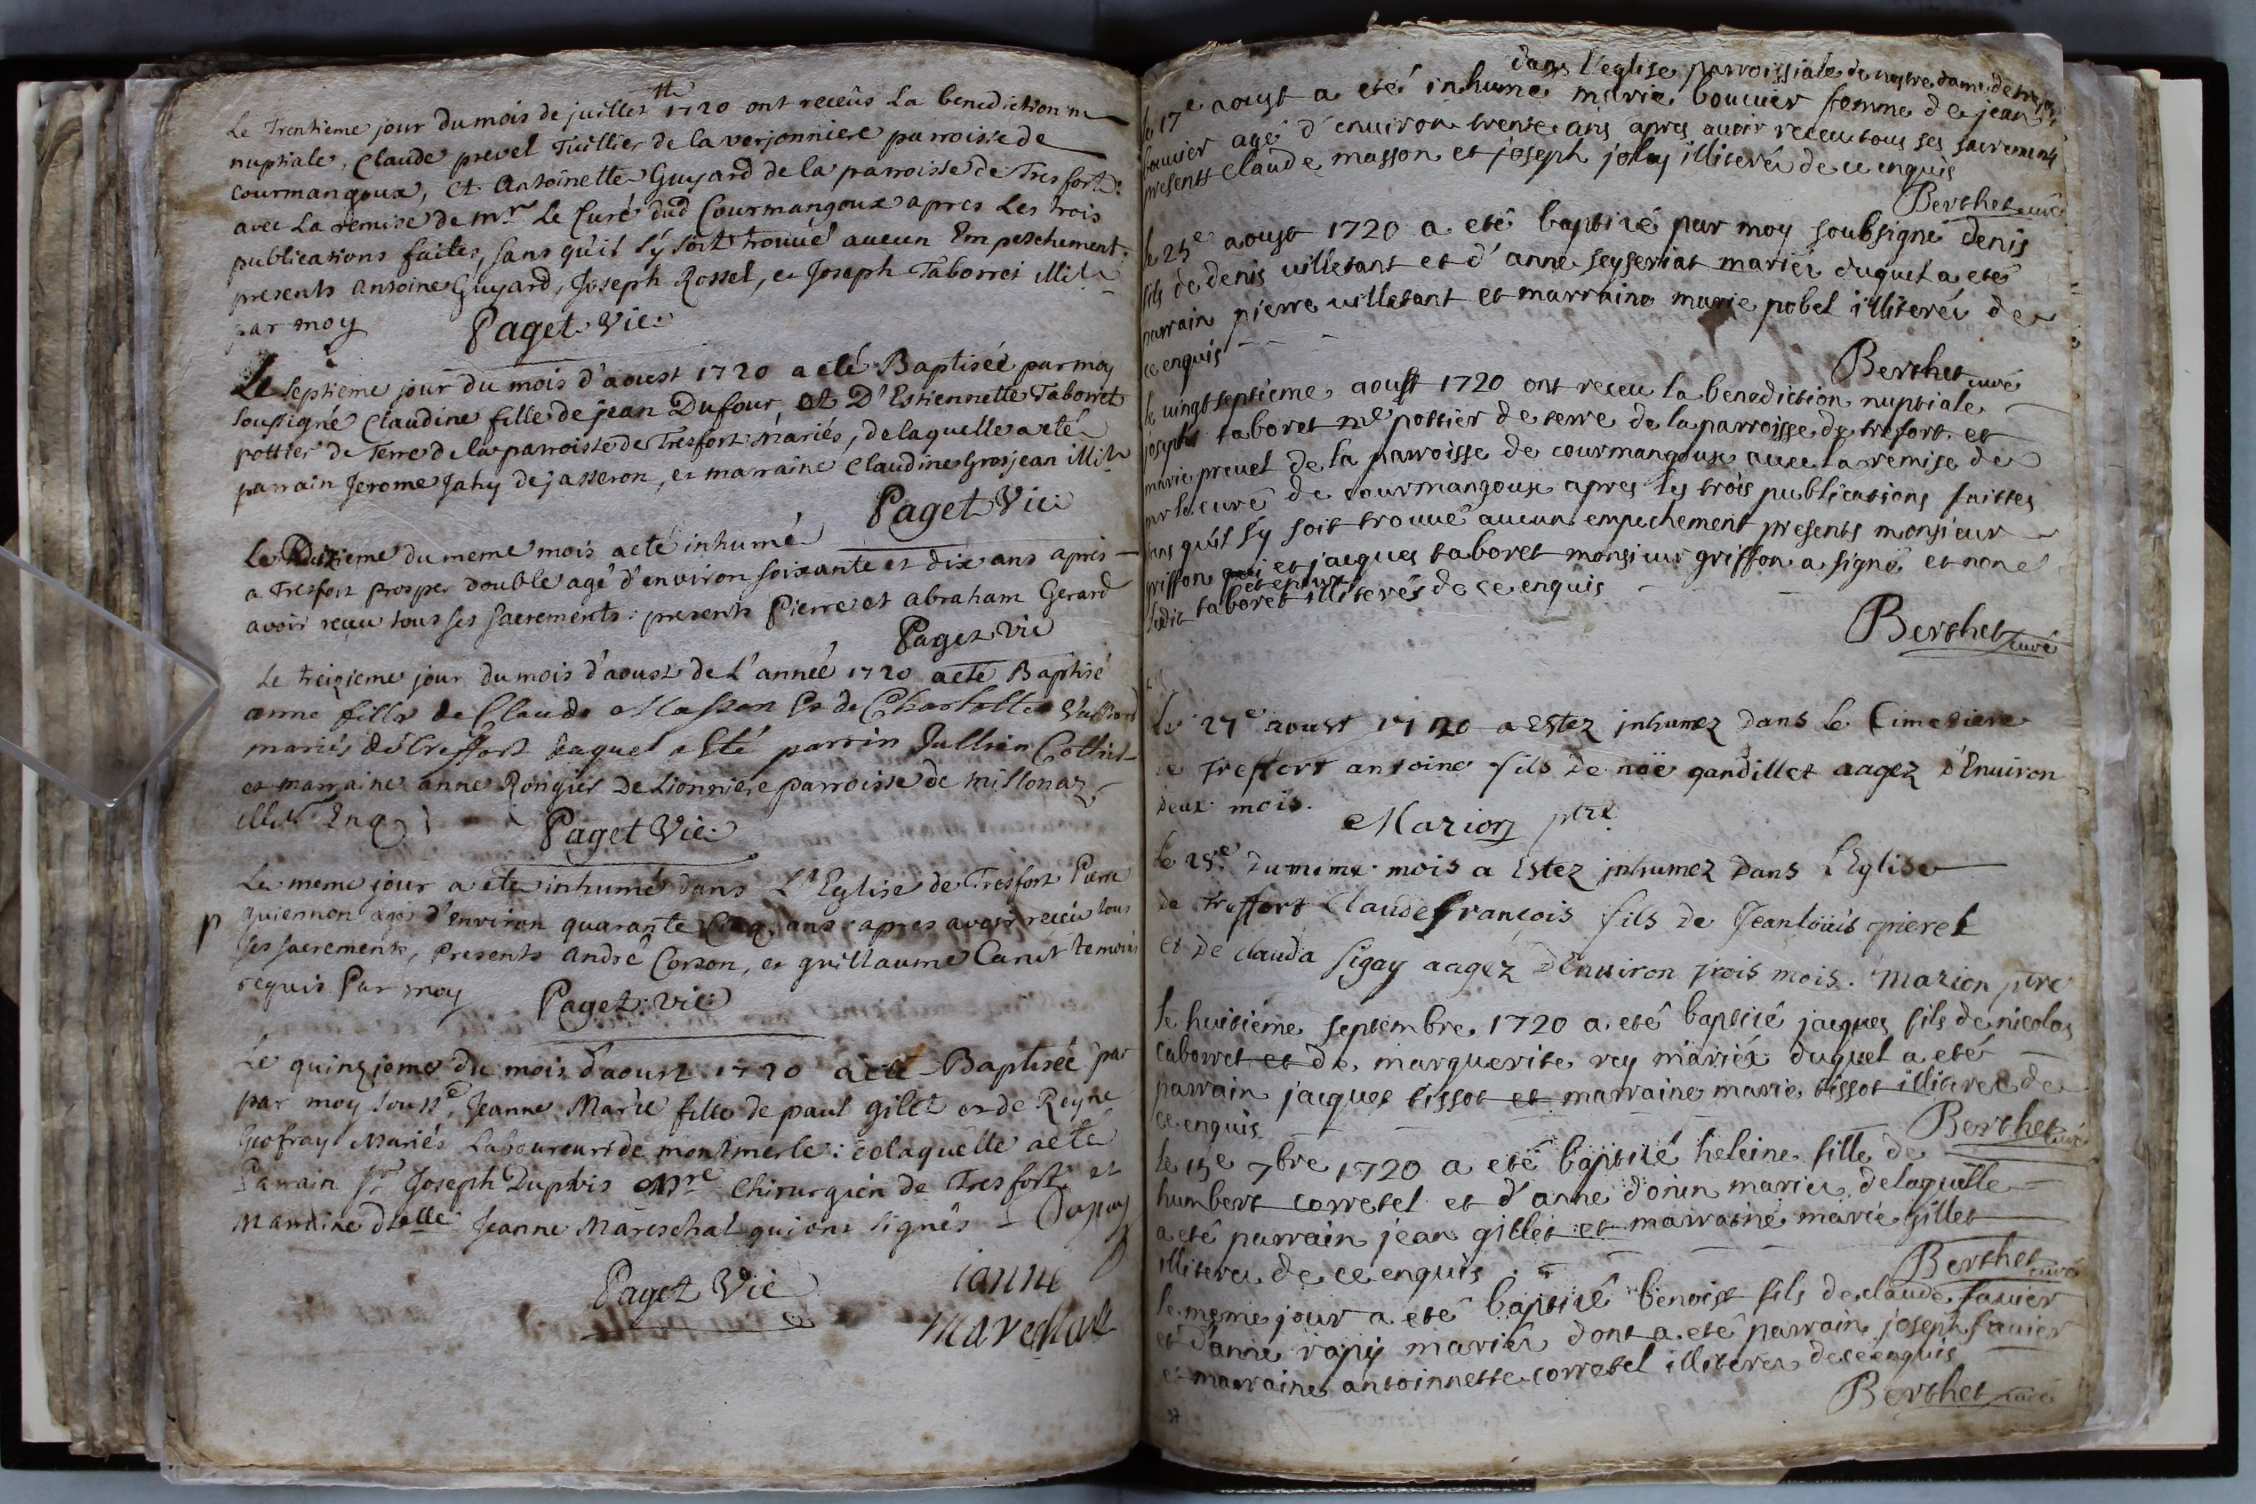 Le Trentieme jour du mois de juillet 1720 ont receûs La benediction
nuptiale, Claude prevel Tuillier de la verjonniere parroisse de
courmangoux, Et Antoinette Guyard de la parroisse de Tresfort
avec La remise de mr. Le Curé dud Courmangoux apres Les trois
publications faites, sans qu'il s'y soit trouvé aucun Empeschement
presents Antoine Guyard, Joseph Rossel, et Joseph Taborret illit.
par moy Paget Vic:
Le septieme jour du mois d'aoust 1720 a eté Baptiseé par moy
soussigné Claudine fille de jean Dufour, et D'Estiennette Taborret
pottier de Terre de la parroisse de Tresfort Mariés, de laquelle a eté
parrain Jerome Jahy de jasseron, et marraine Claudine Grosjean illit.
Paget Vic:
Le dixieme du meme mois a eté inhumé
a Tresfort prosper double agé d'environ soixante et dix ans apres
avoir reçeu tous ses sacrements: presents Pierre et abraham Gerard
Paget Vic
Le treizieme jour du mois d'aoust de L'année 1720 a eté Baptisé
anne fille de Claude Masson Et de Charlotte
mariés de Treffort Laquel a Eté parrin Jullien Collet
et marraine anne Rongier de Lionniere parroisse de
illit. Enq.
Paget Vic:
Le meme jour a ete inhumé dans L'Eglise de Tresfort Pierre
quiennon agé d'environ quarante Cinq ans apres avoir reçeu tous
ses sacrements, Presents André Corson, et guillaume Canet temoins
requis Par moy Paget Vic:
Le quinzieme du mois d'aoust 1720 a eté Baptiseé par
par moy souss.é Jeanne Marie fille de paul gillet et de Reyne
Geofray Mariés Laboureurs de montmerle: de laquelle a eté
Parrain Sr. Joseph Dupuis Mre Chirurgien de Tresfort et
Marraine dlelle Jeanne Mareschal qui ont signés Dupuy
Paget Vic janne
mareschall
dans l'eglise parroissiale de nostre dame de tresfort
le 17e aoust a eté inhumé marie bouvier femme de jean
bouvier agé d'environ trente ans apres avoir receu tous ses sacrements
presents claude masson et joseph joly illiterés de ce enquis
Berthet curé
le 25e aoust 1720 a eté baptisé par moy soubsigné denis
fils de denis villetant et d'anne seyseriat mariés duquel a eté
parrain pierre villetant et marraine marie pobel illiterés de
ce enquis
Berthet curé
le vingt septieme aoust 1720 ont receu la benediction nuptiale
joseph taboret me pottier de terre de la parroisse de trefort et
marie prevel de la parroisse de courmangoux avec la remise de
mr le curé de courmangoux apres les trois publications faittes
sans qu'il s'y soit trouvé aucun empechement presents monsieur
griffon et jacques taboret monsieur griffon a signé et non
et epoux
ledit taboret illiterés de ce enquis
Berthet curé
Le 27e aoust 1720 a Estez inhumez Dans le Cimetiere
de Treffort antoine fils De noë gandillet aagez D'Environ
Deux mois.
Marion ptre
le 28e. Du mime mois a Estez inhumez Dans L'Eglise
de treffort Claude françois fils De Jean loüis
et De clauda sigay aagez D'Environ trois mois. Marion ptre
le huitiéme septembre 1720 a eté baptisé jacques fils de nicolas
taborret et de marguerite rey mariéz duquel a eté
parrain jacques tissot et marraine marie tissot illiteres de
ce enquis
Berthet curé
le 15e 7bre 1720 a eté baptisé heleine fille de
humbert corretel et d'anne donin mariéz de laquelle
a eté parrain jean gillet et marraine marie gillet
illiterés de ce enquis
Berthet curé
le meme jour a eté baptisé benoist fils de claude favier
et d'anne ropy mariés dont a eté parrain joseph favier
et marraine antoinnette corretel illiteres de ce enquis
Berthet curé